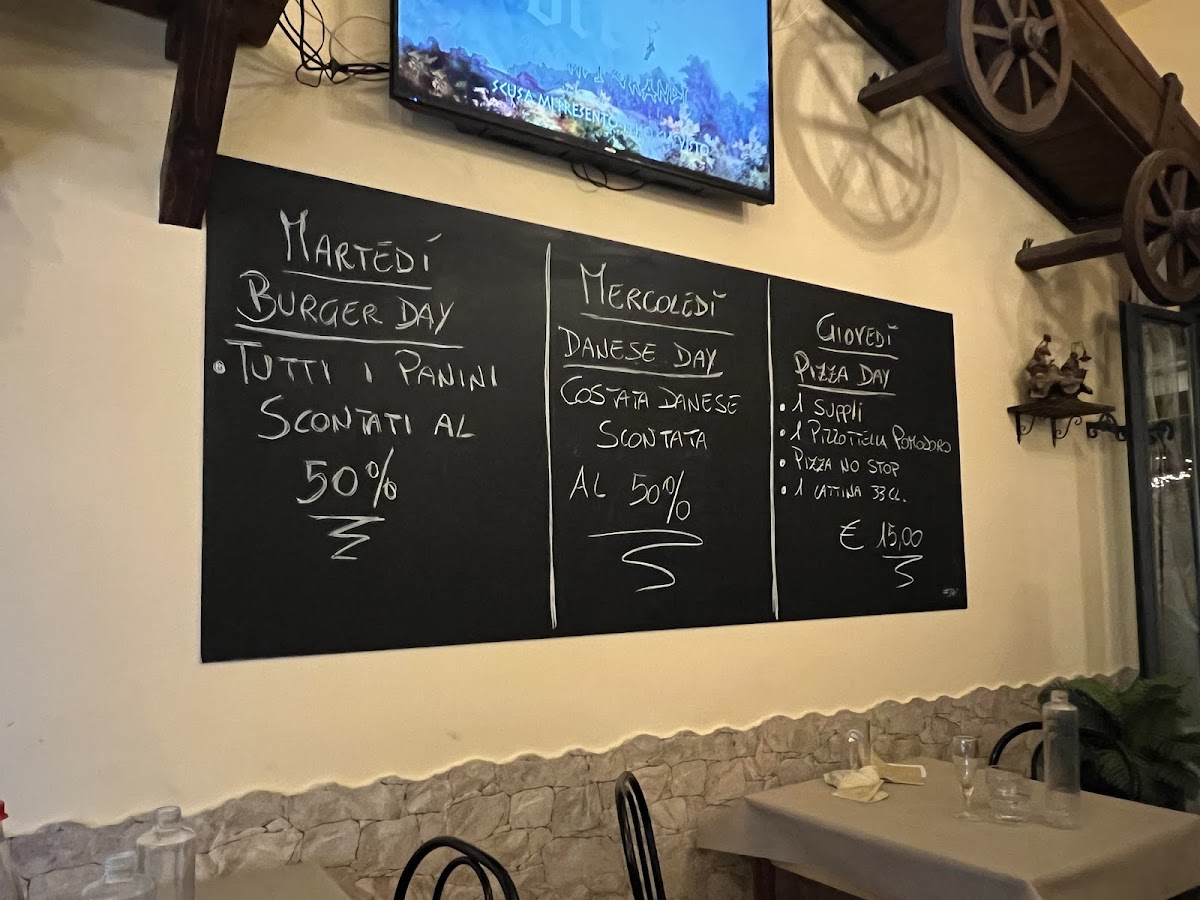 SCUSA MI PRESENTO
MARTEDÍ
BURGER DAY
• TUTTI I PANINI
SCONTATI AL
50%
MERCOLEDÌ
DANESE DAY
COSTATA DANESE
SCONTATA
AL 50%
GIOVEDÌ
PIZZA DAY
• 1 SUPPLÍ
• 1 PIZZOTTELLA POMODORO
• PIZZA NO STOP
• 1 LATTINA 33 CL.
€ 15,00